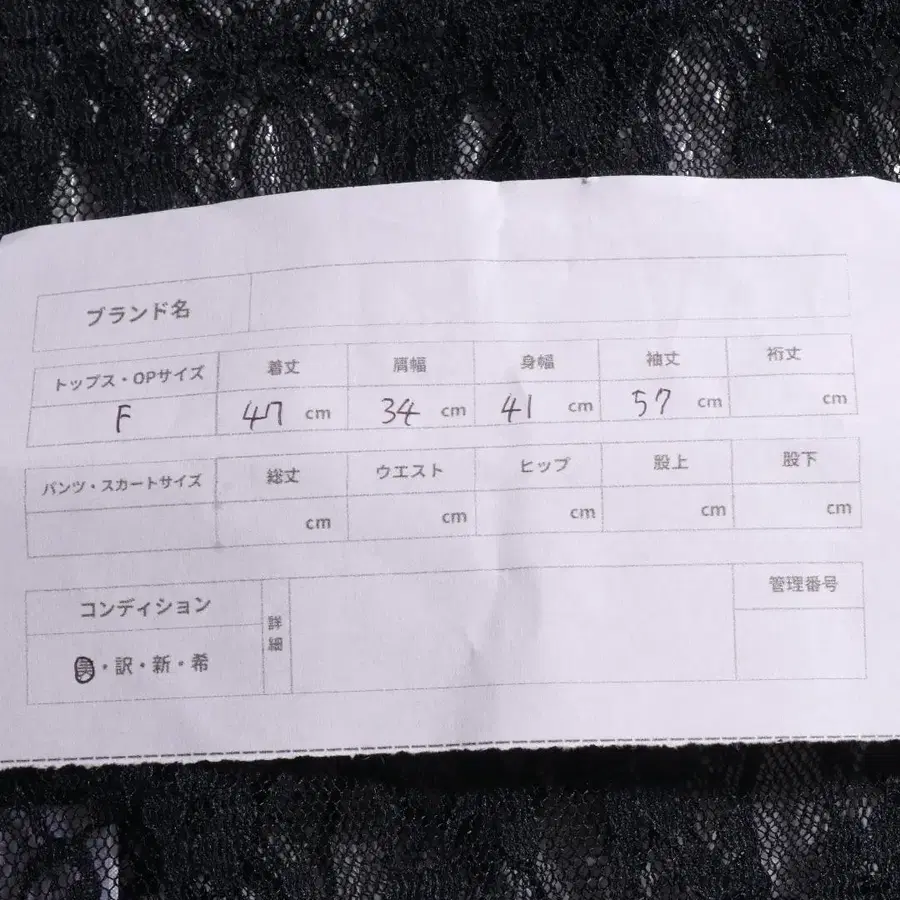 ブランド名
トップス・OPサイズ 着丈 肩幅 身幅 袖丈 裄丈
F 47 cm 34 cm 41 cm 57 cm cm
パンツ・スカートサイズ 総丈 ウエスト ヒップ 股上 股下
cm cm cm cm cm
コンディション 詳細 管理番号
美・訳・新・希